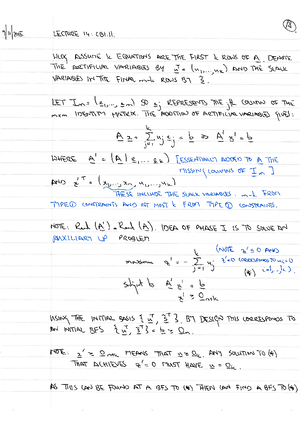 LECTURE 14: CO1.11.
WLOG ASSUME k EQUATIONS ARE THE FIRST k ROWS OF A. DENOTE
THE ARTIFICIAL VARIABLES BY u^T = (u₁,...,u_k) AND THE SLACK
VARIABLES IN THE FINAL m-k ROWS BY
LET I_m = (e₁,...,e_m) SO e_j REPRESENTS THE jth COLUMN OF THE
m×m IDENTITY MATRIX. THE ADDITION OF ARTIFICIAL VARIABLES GIVES:
A x + Σ_{j=1}^{k} u_j e_j = b ⇒ A' x' = b
WHERE A' = (A | e₁ ... e_k) [ESSENTIALLY ADDED TO A THE
MISSING COLUMNS OF I_m]
AND x'^T = (x₁,...,x_n, u₁,...,u_k)
THESE INCLUDE THE SLACK VARIABLES. m-k FROM
TYPE① CONSTRAINTS AND AT MOST k FROM TYPE② CONSTRAINTS.
NOTE: Rank (A') = Rank (A). IDEA OF PHASE I IS TO SOLVE AN
AUXILIARY LP PROBLEM
maximise z' = - Σ_{j=1}^{k} u_j (NOTE z' ≤ 0 AND
z'=0 CORRESPONDS TO u_i=0
(*) i=1,..,k)
subject to A' x' = b
x' ≥ 0_{n+k}
USING THE INITIAL BASIS { u^T, } BY DESIGN THIS CORRESPONDS TO
AN INITIAL BFS { u^T, } = b ≥ 0_m.
NOTE: x' ≥ 0_{n+k} MEANS THAT u ≥ 0_k. ANY SOLUTION TO (*)
THAT ACHIEVES z' = 0 MUST HAVE u = 0_k.
AS THIS CAN BE FOUND AT A BFS TO (*) THEN CAN FIND A BFS TO (*)